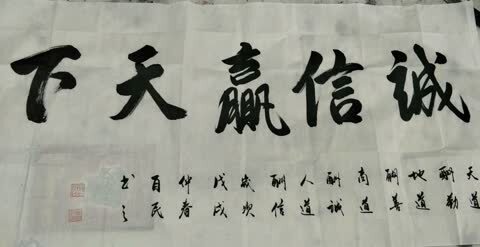 誠信赢天下
天道
酬勤
地道
酬善
商道
酬誠
人道
酬信
歲次
戊戌
仲春
书之